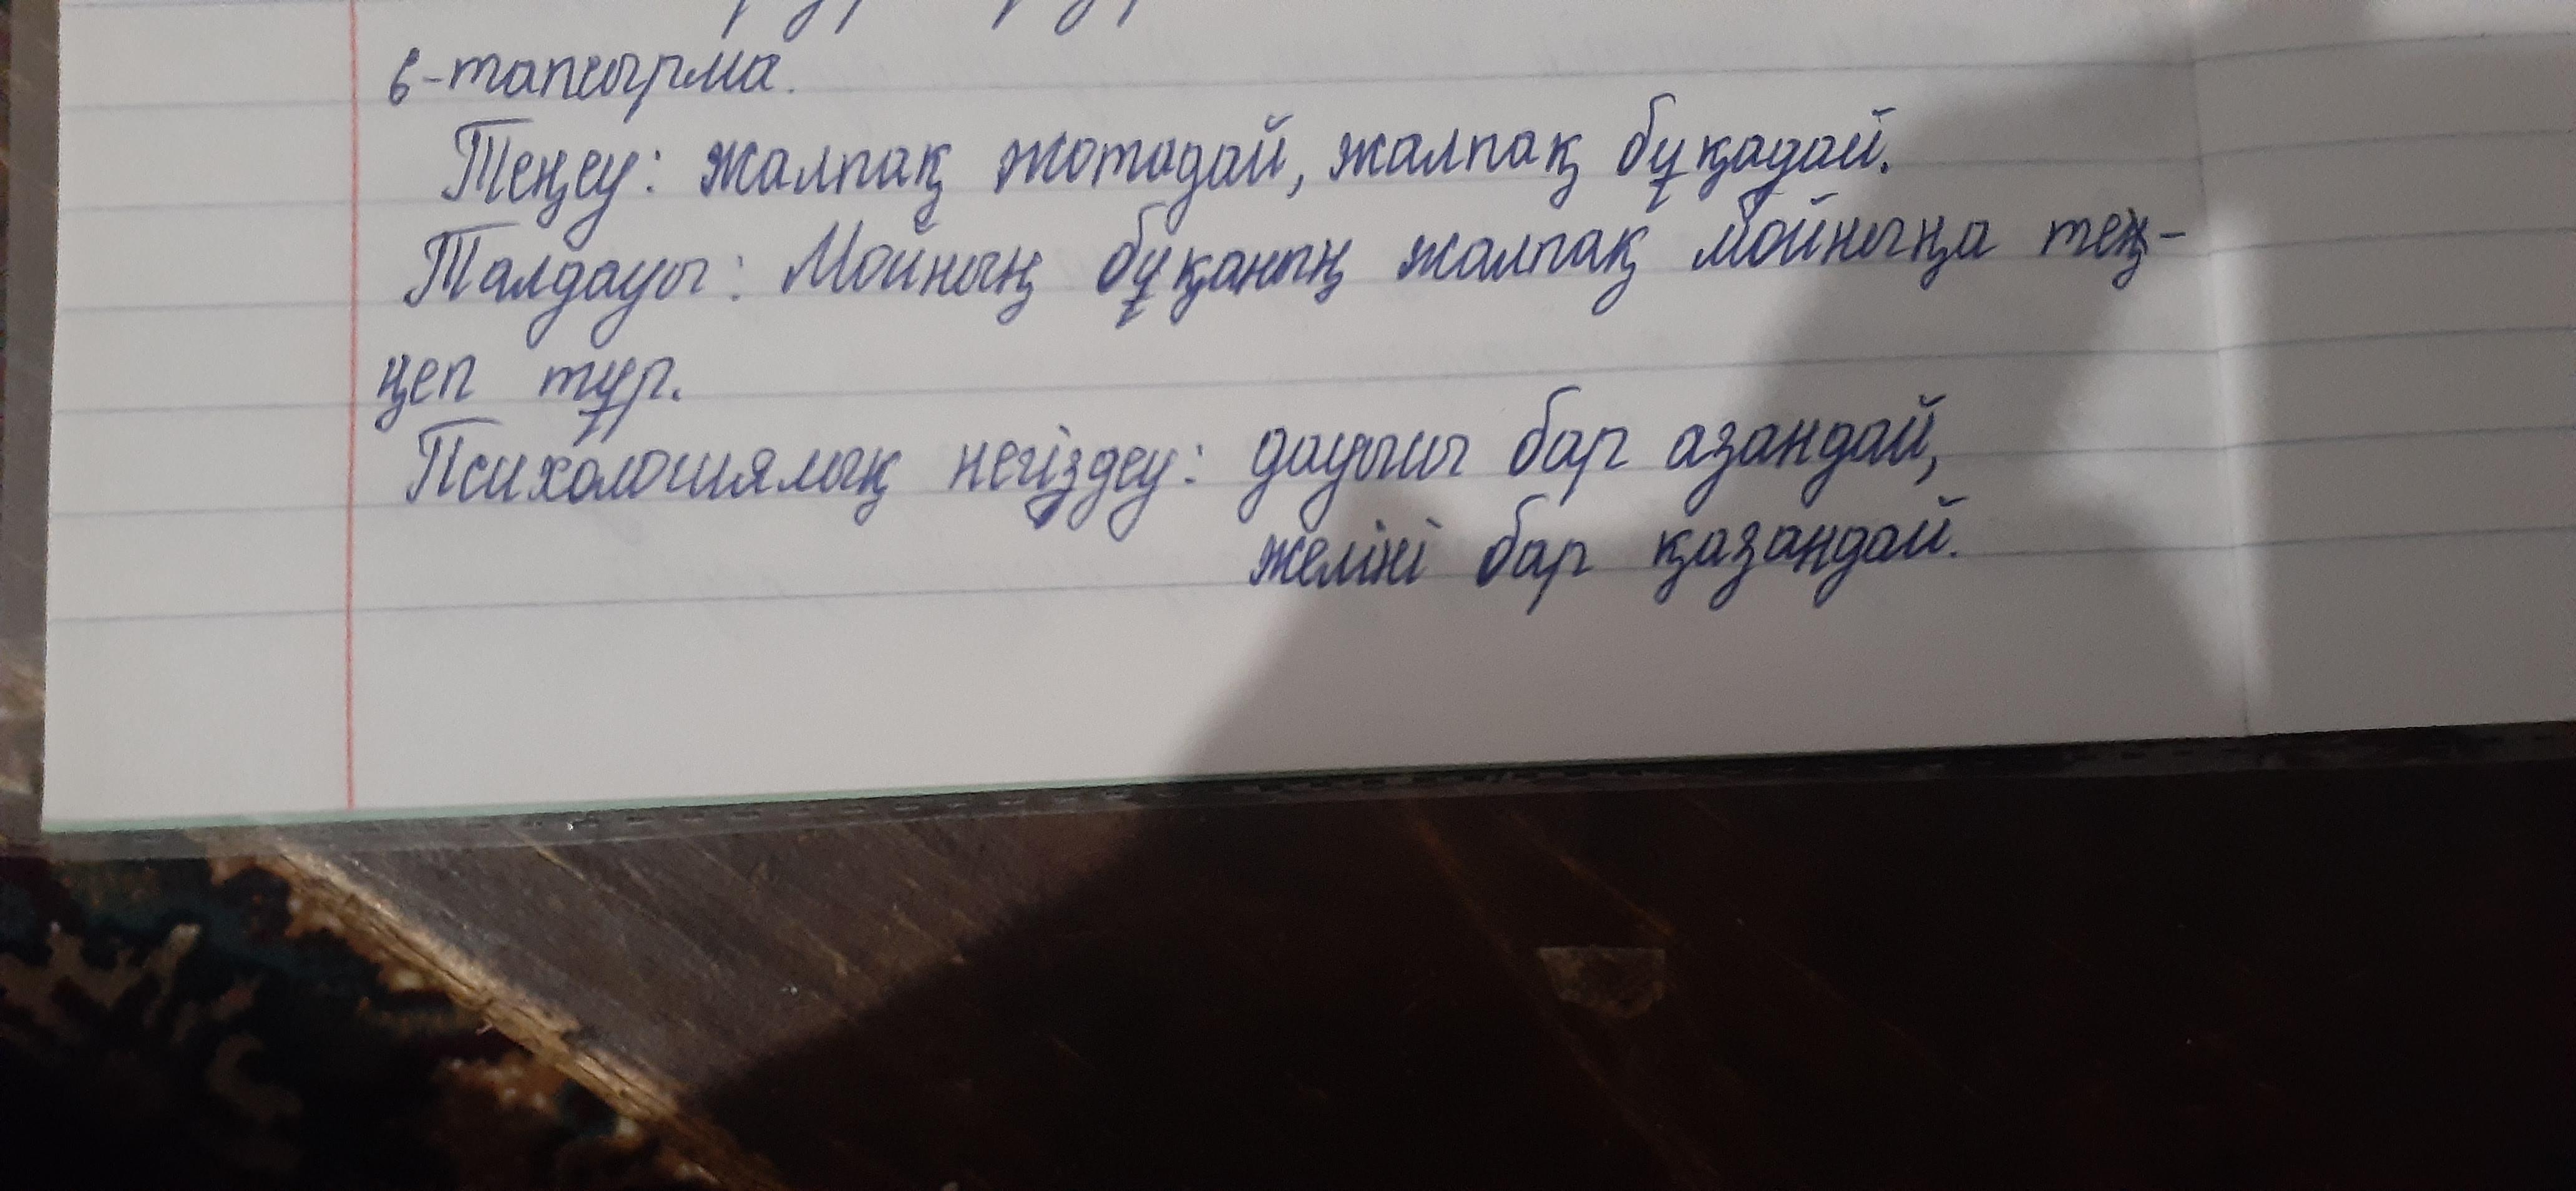 6-тапсырма.
Теңеу: жалпақ жотадай, жалпақ бұқадай.
Талдауы: Мойның бұқаның жалпақ мойныңа тең-
ңеп тұр.
Психологиялық негіздеу: дауысы бар азандай,
желіні бар қазандай.